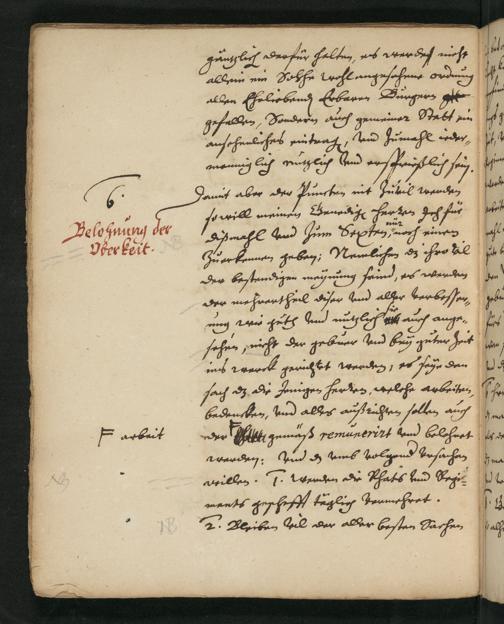 gäntzlich darfür halten, es werde nicht
allein ein Solche wohl angesehene ordnung
allen Ehrliebend Erbaren Burgern
gefallen, Sondern auch gemeiner Statt ein
ansehenliches eintrag, vnd Zumahl ieder-
menniglich nutzlich vnd ersprießlich sein.
6.
Belohnung der
Oberkeit.
Damit aber der Puncten nit Zuvil werden
so will meinen Gnedige Herren Ich für
dißmahl vnd Zum Sexten, nur noch einen
Zuerkennen geben; Nemlichen dz ihr vil
der bestendigen meynung seind, es werden
der mehrertheil diser vnd aller verbesser-
ung wie guth vnd nutzlich sie auch ange-
sehen, nicht der gebuer vnd bey guter Zeit
ins werck gerichtet werden; es seye den
sach dz die Jenigen Herren, welche arbeiten,
bedencken, vnd alles außrichten sollen auch
der gemäß remunerirt vnd belohnet
F arbeit
werden: Vnd dz vmb volgend vrsachen
willen. 1. Werden die Raths vnd Regi-
ments geschefft täglich vermehret.
2. Bleiben vil der aller besten Sachen
NB
NB